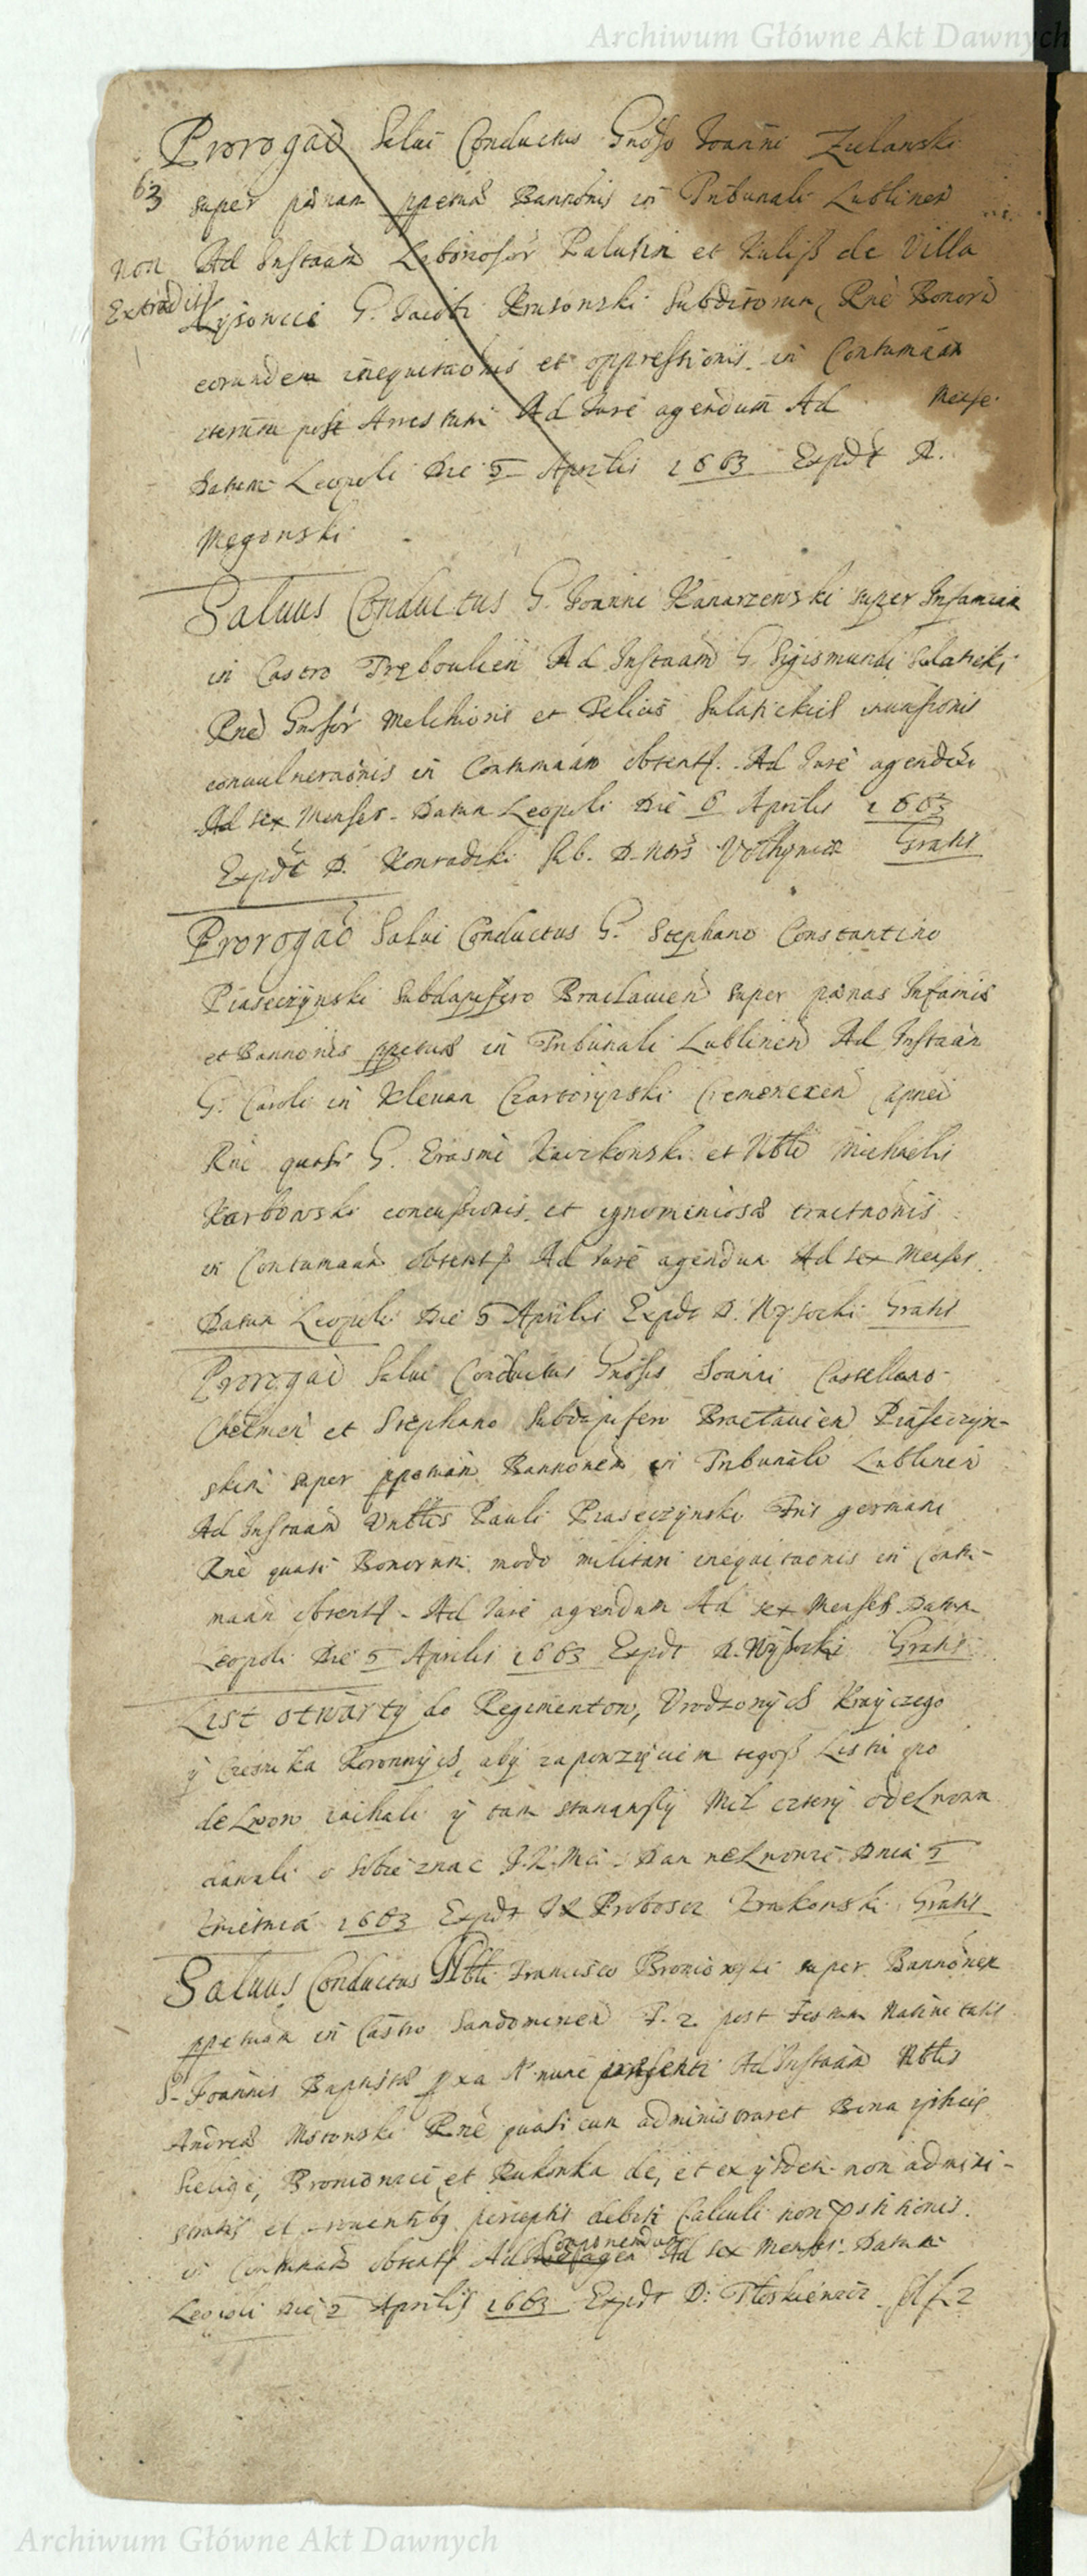 Archiwum Główne Akt Dawnych
Prorogaō Salui Conductus Gnoso Joanni Zulawski
63 super pænam ppetuæ Bannonis in Tribunali Lublinen
non Ad Instaam Laboriosor Palusin et de Villa
Extradit G. Jacobi Krasowski Subditorum, Rne Bonorū
eorundem inequitaonis et oppressionis in Contumaām
iterum post Arrestum Ad Jure agendum Ad Mense
Datum Leopoli Die 5 Aprilis 1663 Expdt D.
Męgowski
Saluus Conductus G. Joanni Kanarzewski super Infamiam
in Castro Trębowlien Ad Instaam G Sigismundi Sulaticki
Rne Gnosor Melchioris et Felicis Sulatickich inuasionis
conuulneraonis in Contumaam obtentę. Ad Jure agendū
Ad sex Menses. Datum Leopoli Die 6 Aprilis 1663
Expdt D. Konradzki Sub. D. Nors Volhyniæ Gratis
Prorogaō Salui Conductus G. Stephano Constantino
Piaseczynski Subdapifero Braclauien super pænas Infamiæ
et Bannonis ppetuæ in Tribunali Lublinen Ad Instaam
G. Caroli in Klewan Czartoryski Cremenecen Capnei
Rne quasi G. Erasmi et Nbli Michaelis
Karbowski concussionis et ignominiosæ tractaonis
in Contumaam obtentę Ad Jure agendum Ad sex Menses
Datum Leopoli Die 5 Aprilis Expdt D. Wysocki Gratis
Prorogaō Salui Conductus Gnosis Joanni Castellano
Chelmen et Stephano Subdapifero Braclauien Piaseczyn-
skim super ppetuam Bannonem in Tribunali Lublinen
Ad Instaam Pauli Piaseczynski Fris germani
Rne quasi Bonorum modo militari inequitaonis in Contu-
maam obtentę. Ad Jure agendum Ad sex Menses Datum
Leopoli Die 5 Aprilis 1663 Expdt D. Wysocki Gratis
List otwarty do Regimentow, Vrodzonych Krayczego
y Czesnika Koronnych, aby za powzięciem tegoß Listu po
de Lwow iachali y tam stanąwszy Mil cztery ode Lwowa
dawali o sobie znac J.K.Mci. Dan we Lwowie Dnia 5
Kwietnia 1663 Expdt JX Proboscz Krakowski Gratis
Saluus Conductus Nbli Francisco Broniowski super Bannonem
ppetuam in Castro Sandomirien F. 2 post Festum Natiuitatis
S. Joannis Baptistæ pxa A nunc præsenti Ad Instaam Nblis
Andreæ Rne quasi cum administraret Bona
Seligi, et de, et ex ijsdem non admini-
stratis et prouentibg perceptis debiti Calculi non positionis
in Contumaam obtentę Ad Componendum Ad sex Menses. Datum
Leopoli Die 2 Aprilis 1663 Expdt D: fl f. 2
Archiwum Główne Akt Dawnych